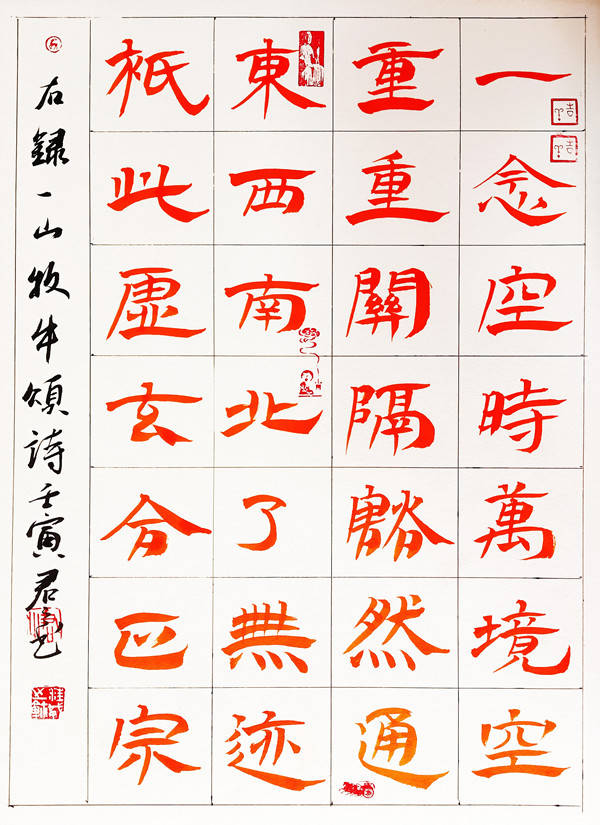 一念空時萬境空
重重關隔豁然通
東西南北了無迹
祇此虛玄合正宗
右錄一山牧牛頌詩壬寅君